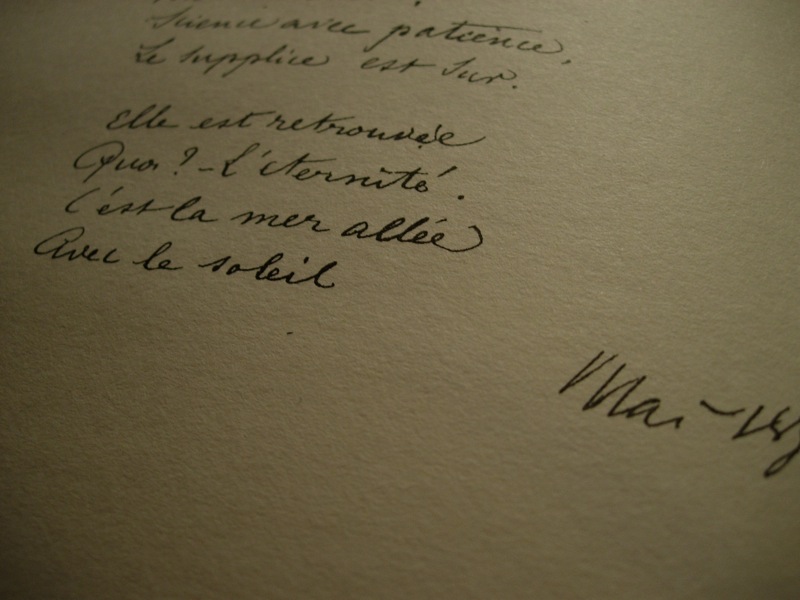 Science avec patience,
Le supplice est sur.
Elle est retrouvée
Quoi ? - L'éternité.
C'est la mer allée
Avec le soleil
Mai 187